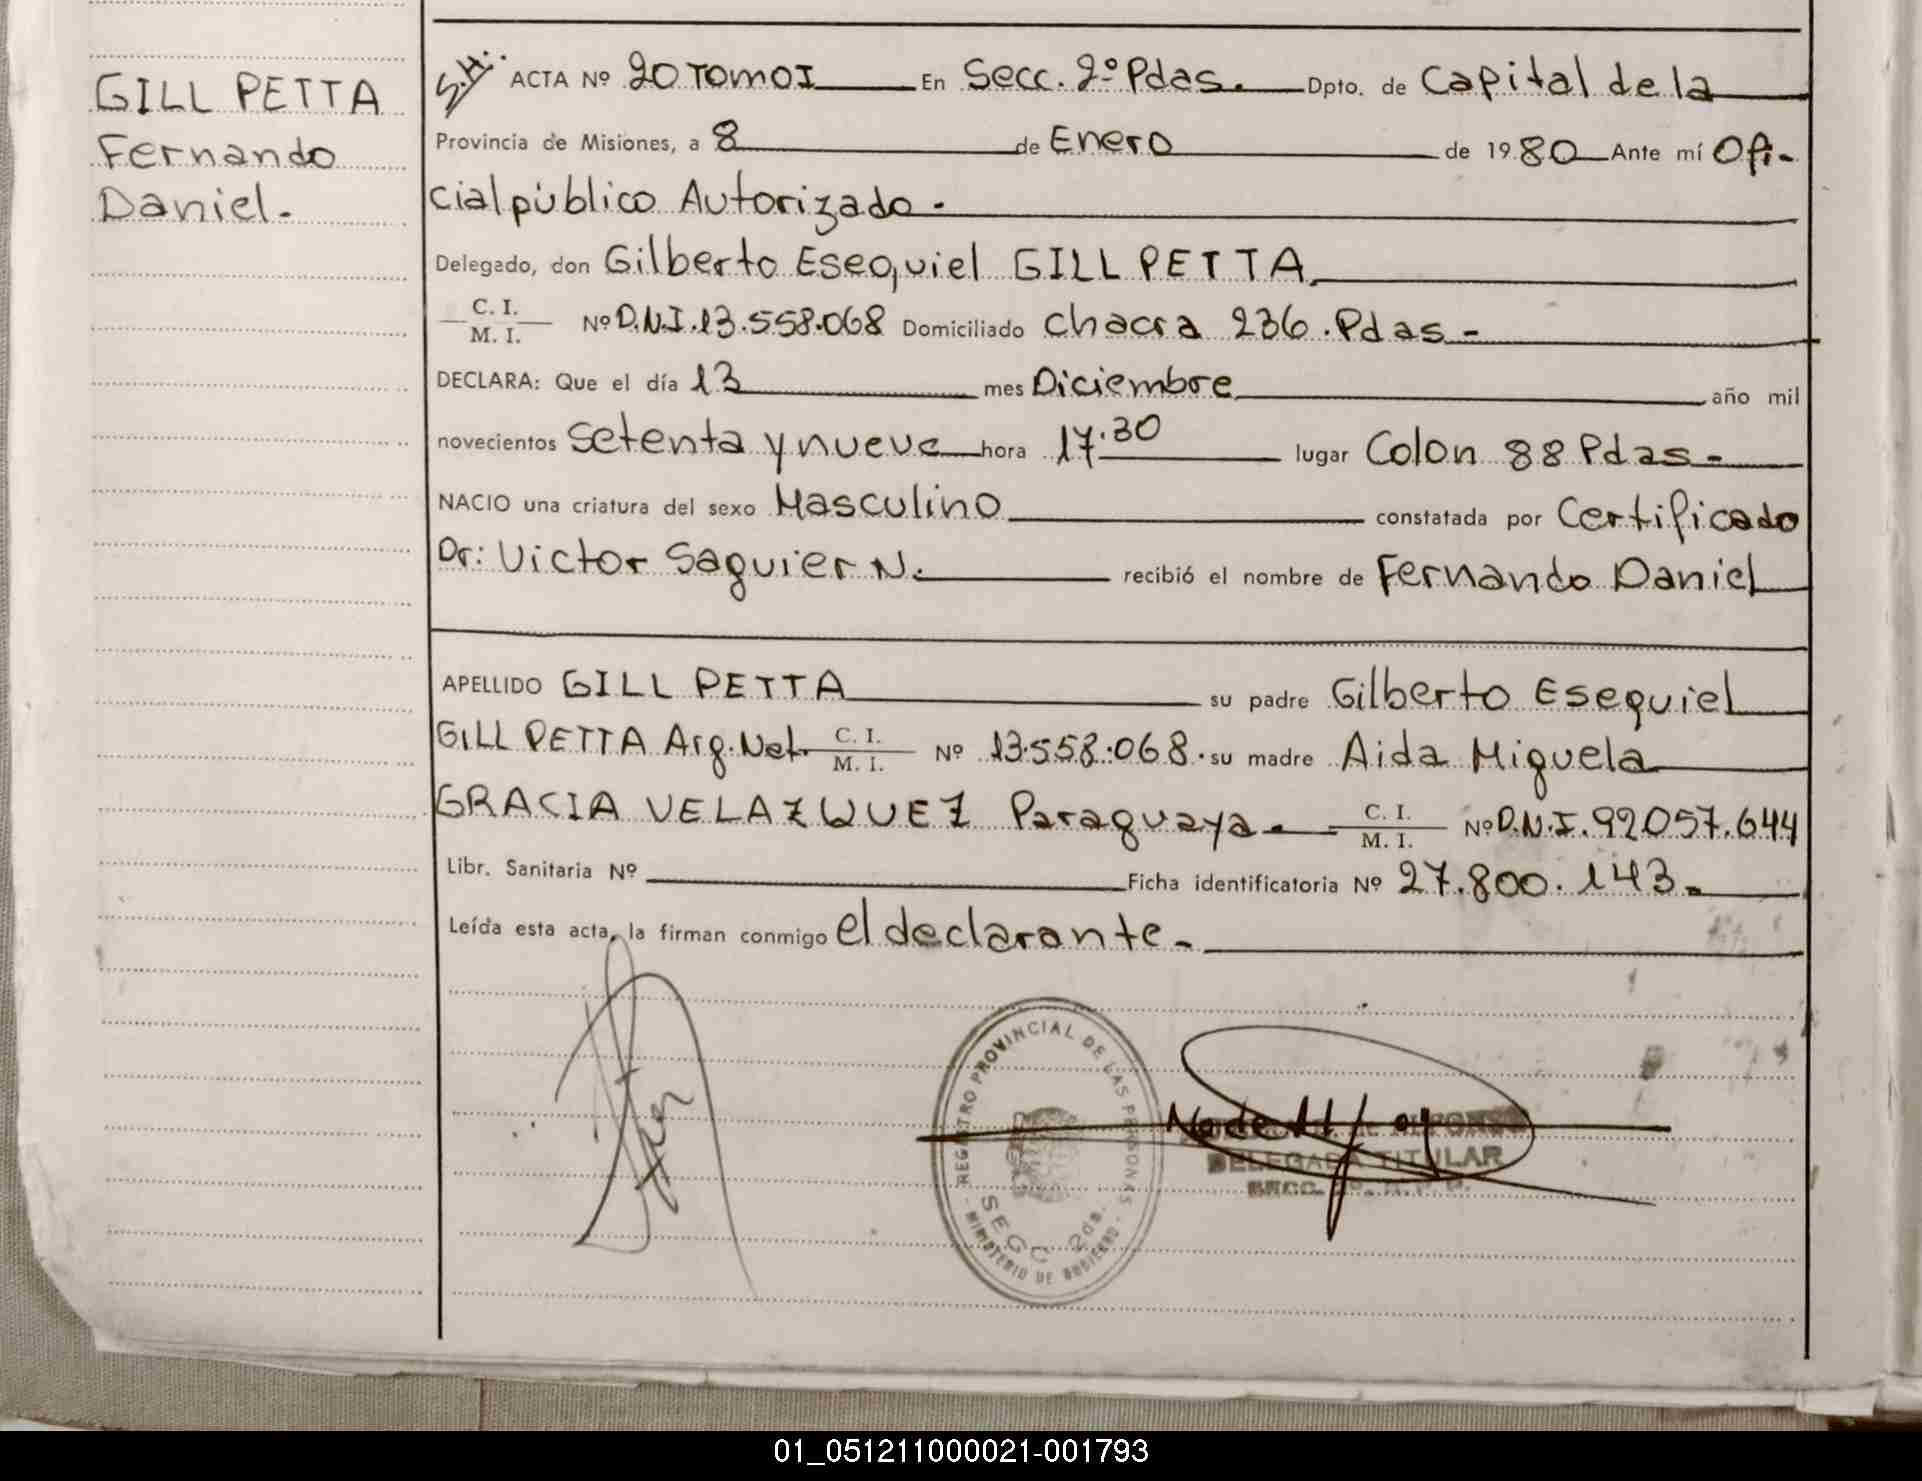 GILL PETTA
Fernando
Daniel.-
S.H.
ACTA Nº 20 TOMO I En Secc. 2º Pdas. Dpto. de Capital de la
Provincia de Misiones, a 8 de Enero de 1980 Ante mí Ofi-
cial público Autorizado.
Delegado, don Gilberto Esequiel GILL PETTA
C. I.
M. I. Nº D.N.I. 13.558.068 Domiciliado Chacra 236. Pdas-
DECLARA: Que el día 13 mes Diciembre año mil
novecientos Setenta y nueve hora 17.30 lugar Colon 88 Pdas-
NACIO una criatura del sexo Masculino constatada por Certificado
Dr: Victor Saguier N. recibió el nombre de Fernando Daniel
APELLIDO GILL PETTA su padre Gilberto Esequiel
GILL PETTA Arg. Nat. C. I. M. I. Nº 13.558.068. su madre Aida Miguela
GRACIA VELAZQUEZ Paraguaya - C. I. M. I. Nº D.N.I. 92057.644
Libr. Sanitaria Nº Ficha identificatoria Nº 27.800.143.-
Leída esta acta, la firman conmigo el declarante-
REGISTRO PROVINCIAL DE LAS PERSONAS
MINISTERIO DE GOBIERNO
SECC 2da.
DELEGADA TITULAR
SECC. 2ª. R. P. P.
01_051211000021-001793